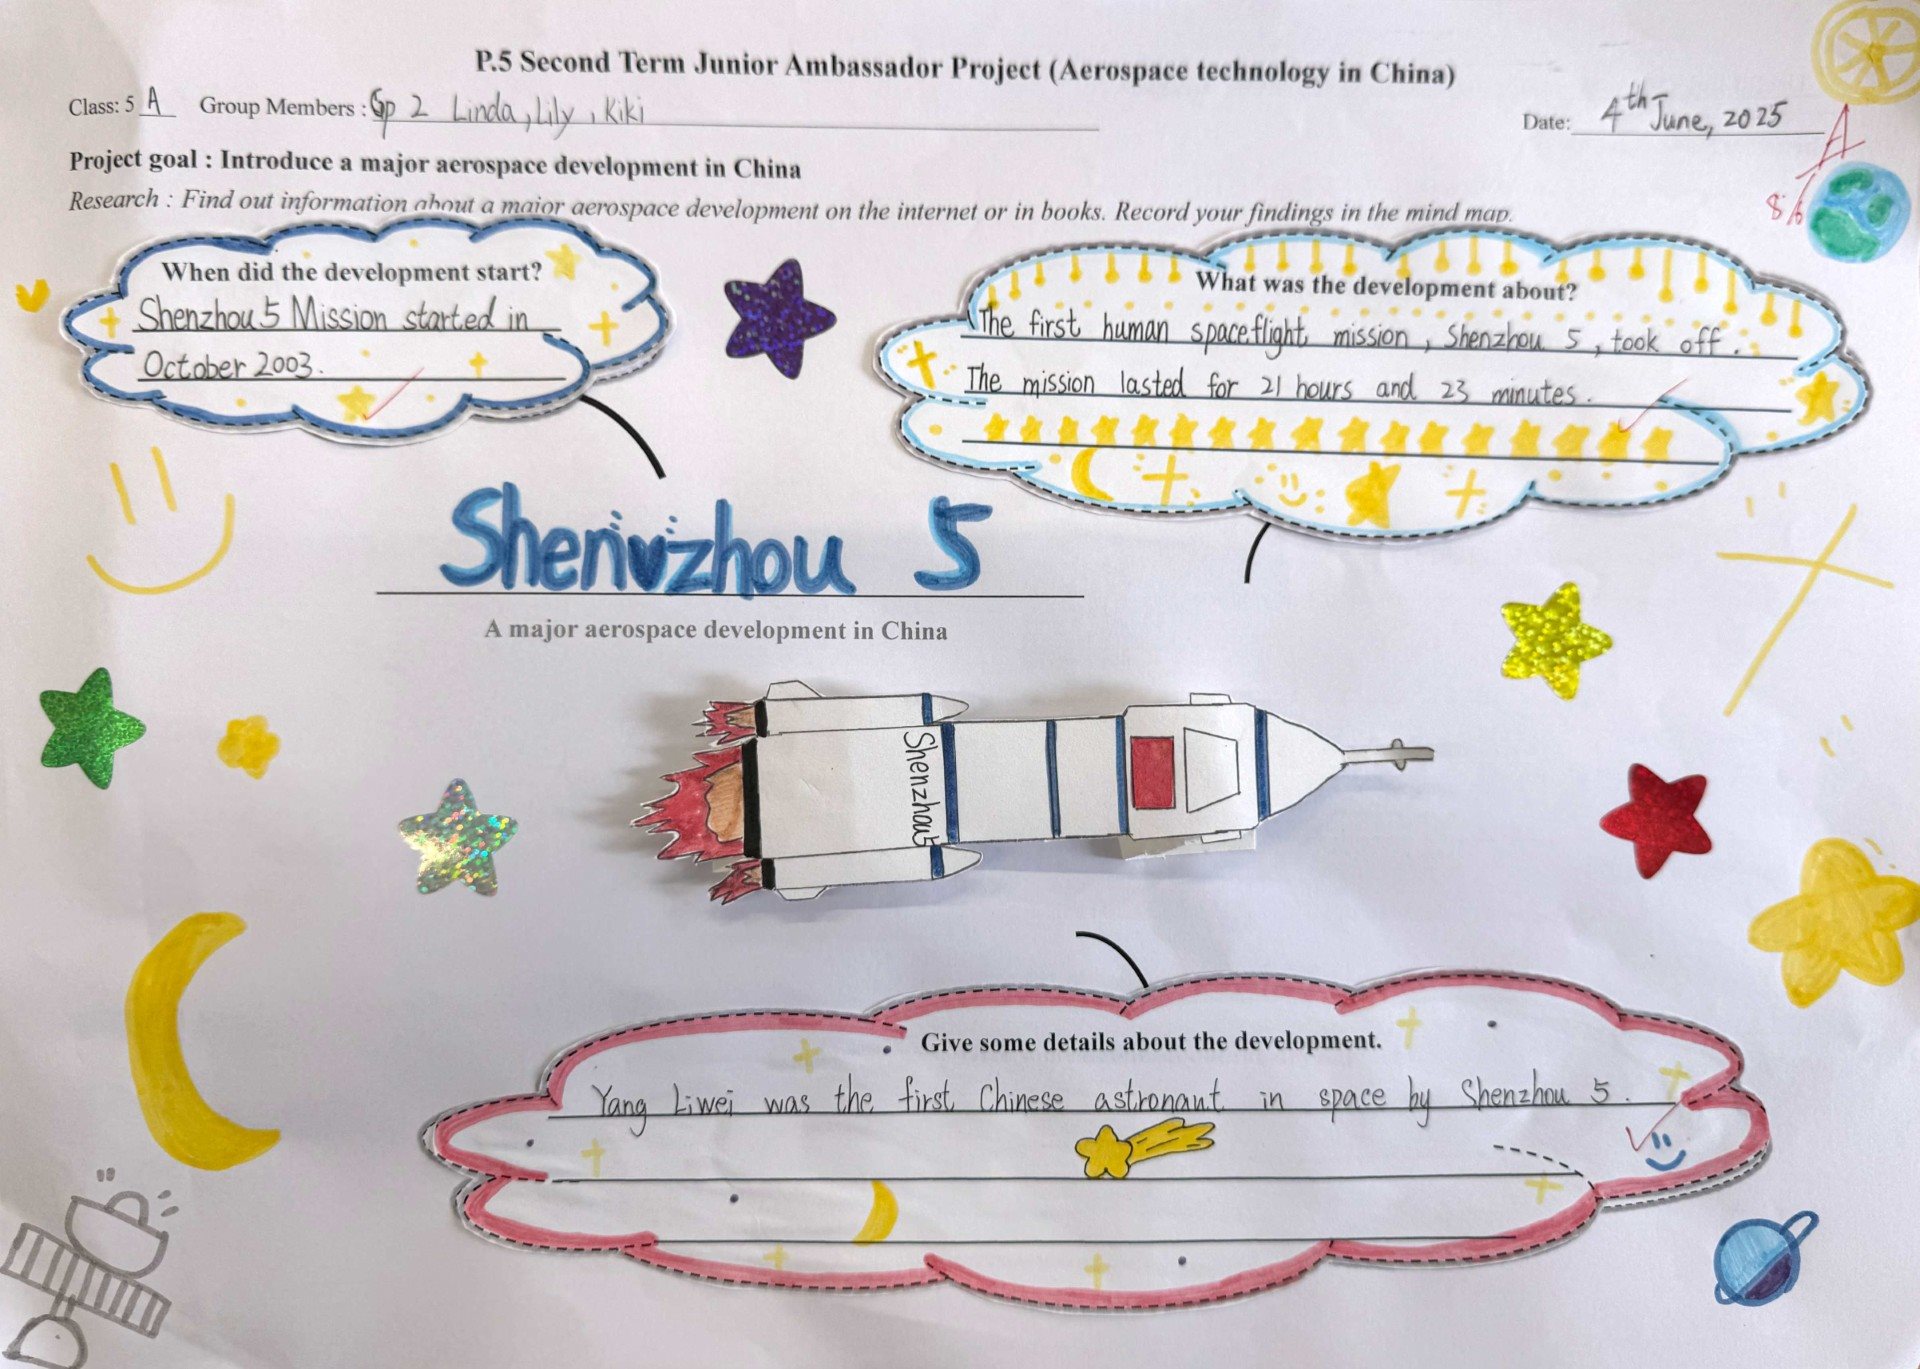 P.5 Second Term Junior Ambassador Project (Aerospace technology in China)
Class: 5 A Group Members : Gp 2 Linda, Lily, Kiki
Date: 4th June, 2025
A
8/6
Project goal : Introduce a major aerospace development in China
Research : Find out information about a major aerospace development on the internet or in books. Record your findings in the mind map.
When did the development start?
Shenzhou 5 Mission started in
October 2003.
What was the development about?
The first human spaceflight mission, Shenzhou 5, took off.
The mission lasted for 21 hours and 23 minutes.
Shenzhou 5
A major aerospace development in China
Shenzhou5
Give some details about the development.
Yang Liwei was the first Chinese astronaut in space by Shenzhou 5.